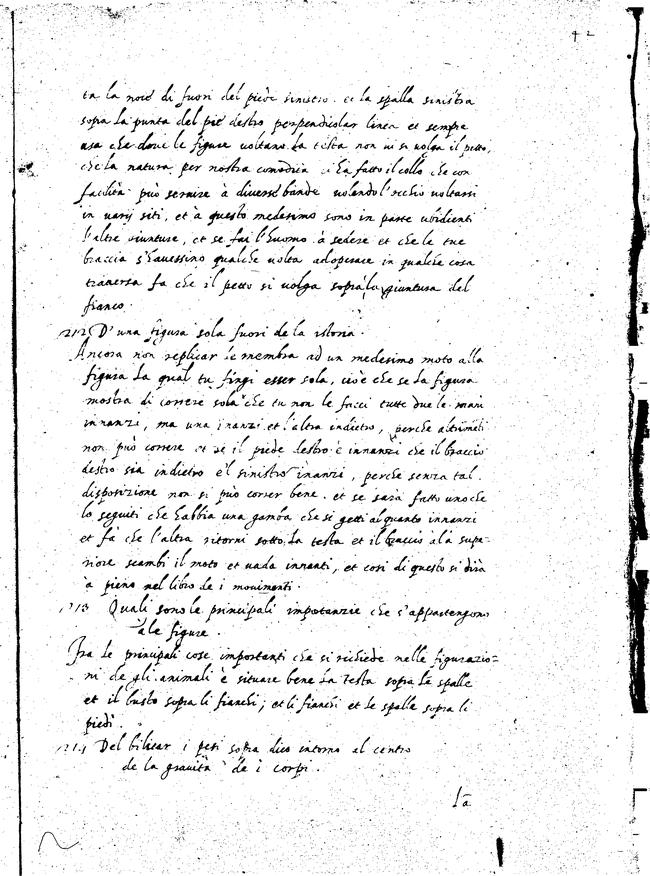 42
ta la nocé di fuori del piede sinistro. et la spalla sinistra
sopra la punta del pié destro perpendicolar linea et sempre
usa che doue le figure uoltano la testa non ui si uolga il petto,
che la natura per nostra comodita ci ha fatto il collo che con
facilità può seruire à diuerse bande uolendo l'occhio uoltarsi
in uarij siti, et à questo medesimo sono in parte ubidienti
l'altre giunture, et se fai l'huomo à sedere et che le tue
braccia s'hauessino qualche uolta adoperare in qualche cosa
trauersa fa che il petto si uolga sopra la giuntura del
fianco.
212 D'una figura sola fuori de la istoria.
Ancora non replicar le membra ad un medesimo moto alla
figura la qual tu fingi esser sola, cioè che se la figura
mostra di correre sola che tu non le facci tutte due le mani
innanzi, ma una inanzi et l'altra indietro, perche altrimenti
non può correre et se il piede destro è innanzi che il braccio
destro sia indietro e'l sinistro inanzi, perche senza tal
disposizione non si può correr bene. et se sarà fatto uno che
lo seguiti che habbia una gamba che si getti alquanto innanzi
et fà che l'altra ritorni sotto la testa et il braccio ala supe-
riore scambi il moto et uada innanti, et cosi di questo si dirà
à pieno nel libro de i mouimenti.
213 Quali sono le principali importanzie che s'appartengono
ale figure.
Fra le principali cose importanti che si richiede nelle figurazio=
ni de gli animali è situare bene la Testa sopra le spalle
et il busto sopra li fianchi; et li fianchi et le spalle sopra li
piedi.
214 Del bilicar i pesi sopra dico intorno al centro
de la grauità de i corpi.
La